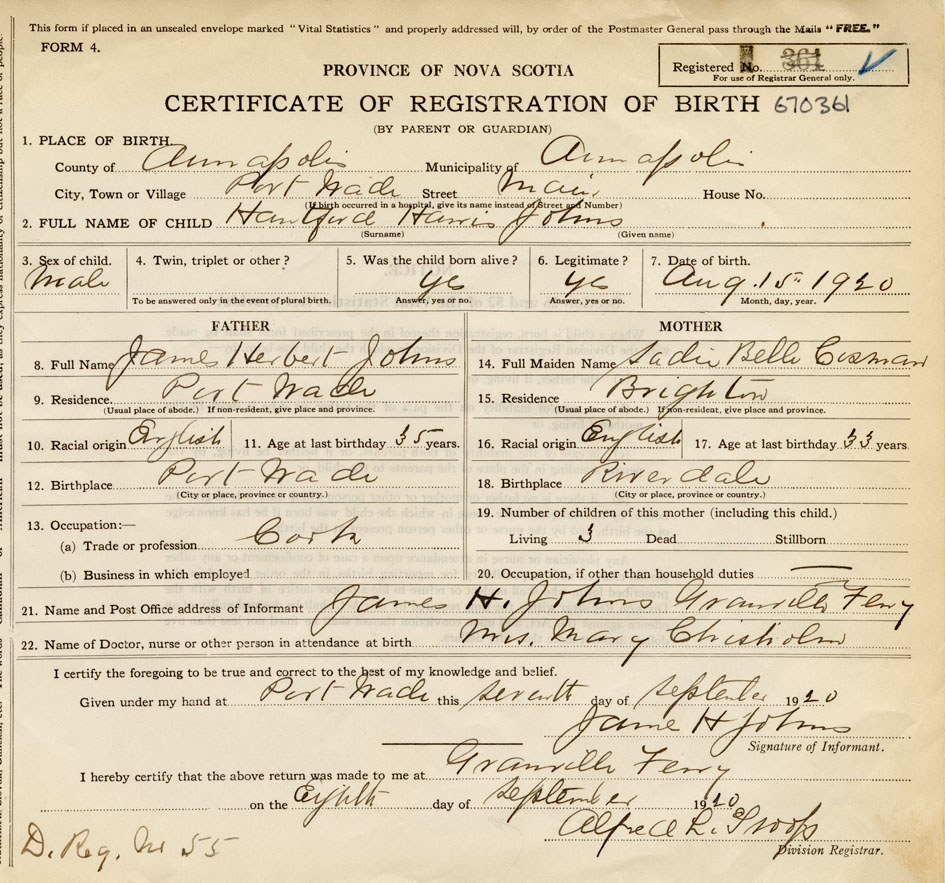 This form if placed in an unsealed envelope marked "Vital Statistics" and properly addressed will, by order of the Postmaster General pass through the Mails "FREE."
FORM 4.
Registered No. 361
For use of Registrar General only.
PROVINCE OF NOVA SCOTIA
CERTIFICATE OF REGISTRATION OF BIRTH 670361
(BY PARENT OR GUARDIAN)
1. PLACE OF BIRTH
County of Annapolis Municipality of Annapolis
City, Town or Village Port Wade Street Main House No.
(If birth occurred in a hospital, give its name instead of Street and Number)
2. FULL NAME OF CHILD Hantford Harris Johns
(Surname) (Given name)
3. Sex of child. Male
4. Twin, triplet or other?
To be answered only in the event of plural birth.
5. Was the child born alive? yes
Answer, yes or no.
6. Legitimate? yes
Answer, yes or no.
7. Date of birth. Aug. 15 1920
Month, day, year.
FATHER
8. Full Name James Herbert Johns
9. Residence. Port Wade
(Usual place of abode.) If non-resident, give place and province.
10. Racial origin English 11. Age at last birthday 35 years.
12. Birthplace Port Wade
(City or place, province or country.)
13. Occupation:—
(a) Trade or profession
(b) Business in which employed
MOTHER
14. Full Maiden Name Sadie Belle Cosman
15. Residence Brighton
(Usual place of abode.) If non-resident, give place and province.
16. Racial origin English 17. Age at last birthday 33 years.
18. Birthplace Riverdale
(City or place, province or country.)
19. Number of children of this mother (including this child.)
Living 3 Dead Stillborn
20. Occupation, if other than household duties —
21. Name and Post Office address of Informant James H. Johns Granville Ferry
22. Name of Doctor, nurse or other person in attendance at birth Mrs. Mary Chisholm
I certify the foregoing to be true and correct to the best of my knowledge and belief.
Given under my hand at Port Wade this seventh day of September 1920
Jame H Johns
Signature of Informant.
I hereby certify that the above return was made to me at Granville Ferry
on the Eighth day of September 1920
Alfred L.
Division Registrar.
D. Reg. No 55